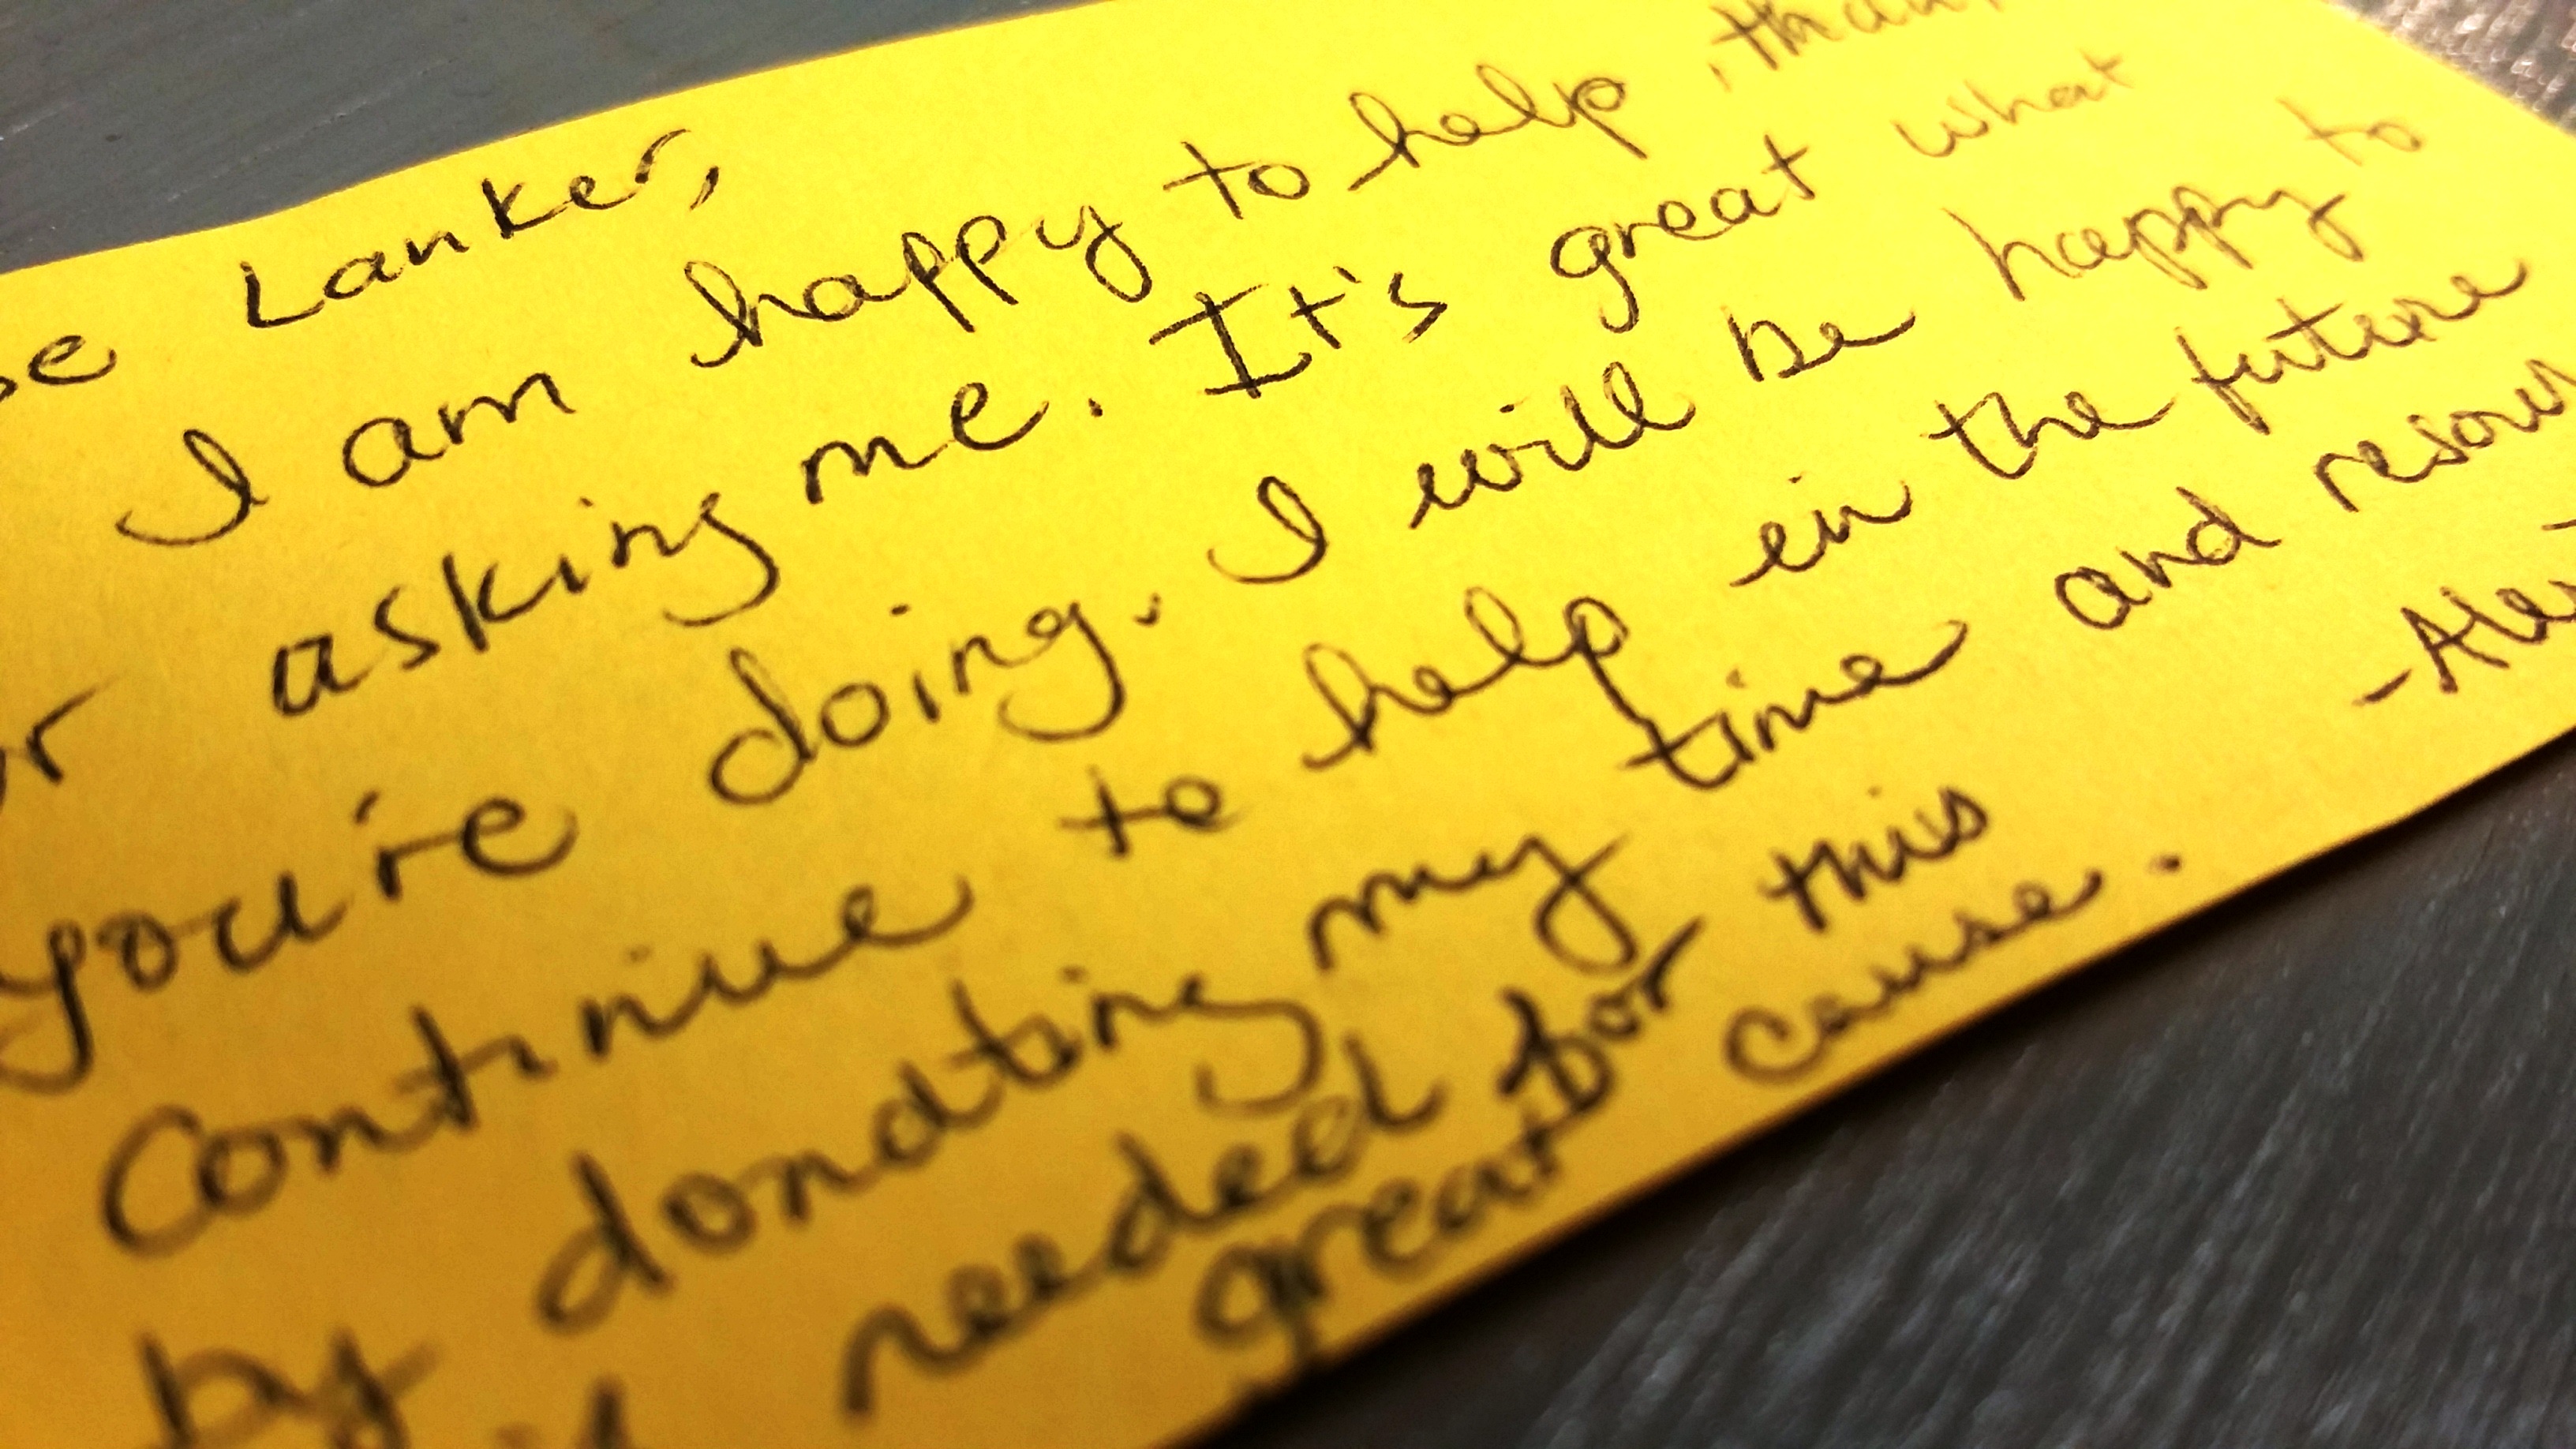 se Lanker,
I am happy to help, than
or asking me. It's great what
you're doing. I will be happy to
continue to help in the future
by donating my time and resour
if needed for this
great cause.
-Ale